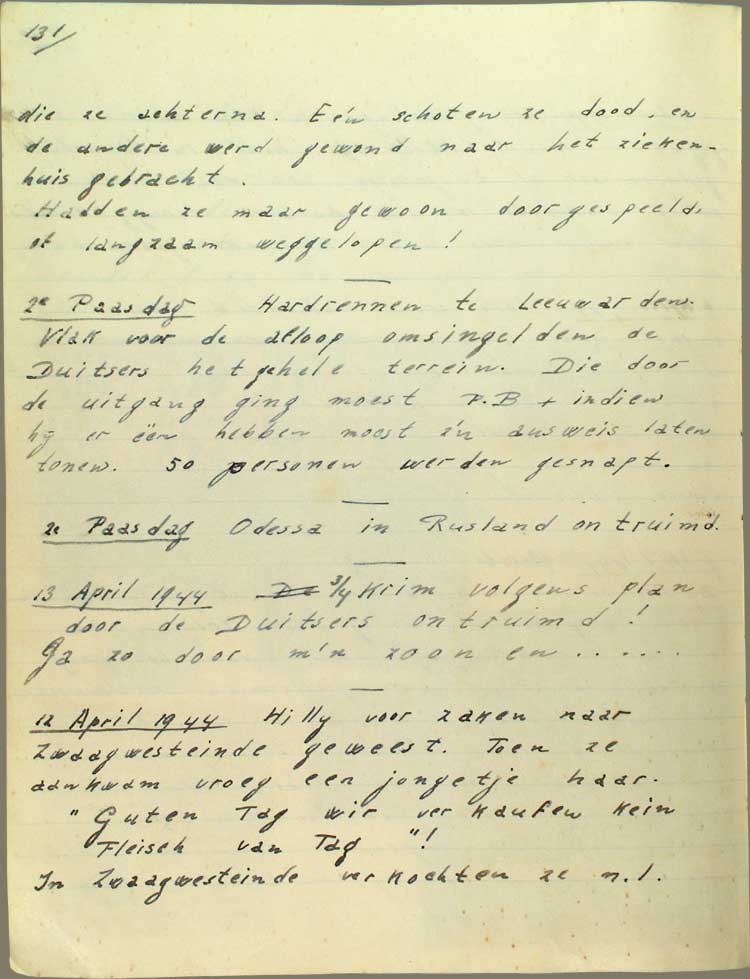 131/
die ze achterna. Eén schoten ze dood, en
de andere werd gewond naar het zieken-
huis gebracht.
Hadden ze maar gewoon doorgespeeld,
of langzaam weggelopen!
2e Paasdag Hardrennen te Leeuwarden.
Vlak voor de afloop omsingelden de
Duitsers het gehele terrein. Die door
de uitgang ging moest P.B + indien
hij er één hebben moest z'n ausweis laten
tonen. 50 personen werden gesnapt.
2e Paasdag Odessa in Rusland ontruimd.
13 April 1944 De 3/4 Krim volgens plan
door de Duitsers ontruimd!
Ga zo door m'n zoon en ......
12 April 1944 Hilly voor zaken naar
Zwaagwesteinde geweest. Toen ze
aankwam vroeg een jongetje haar.
"Guten Tag wir verkaufen kein
Fleisch van Tag"!
In Zwaagwesteinde verkochten ze n.l.